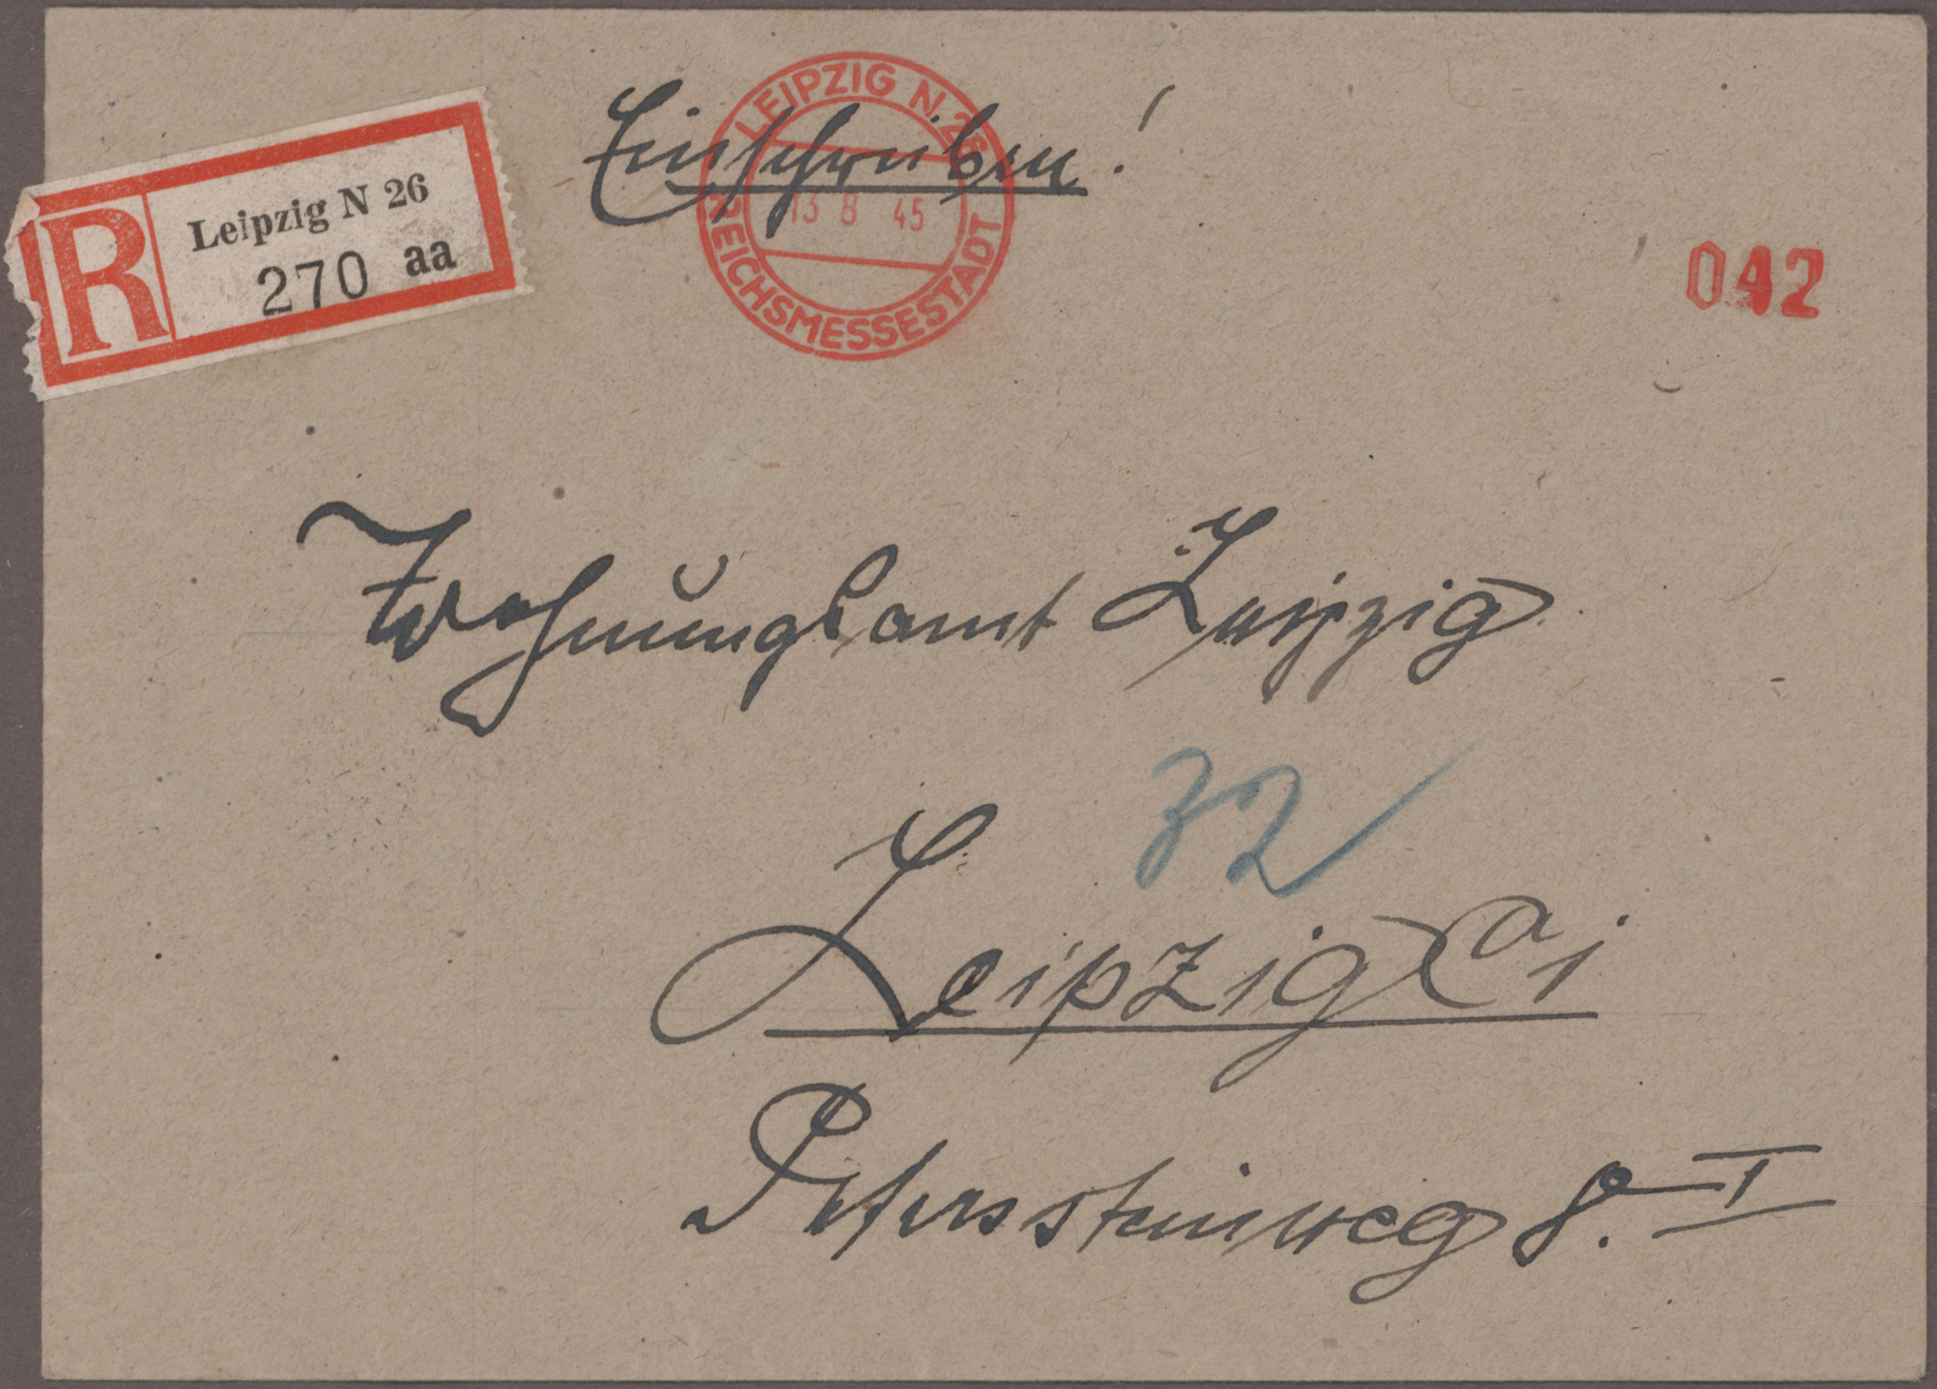 Einschreiben!
LEIPZIG N. 26
13 8 45
REICHSMESSESTADT
R
Leipzig N 26
270 aa
042
Wohnungsamt Leipzig
32
Leipzig C 1
Peterssteinweg 8. I